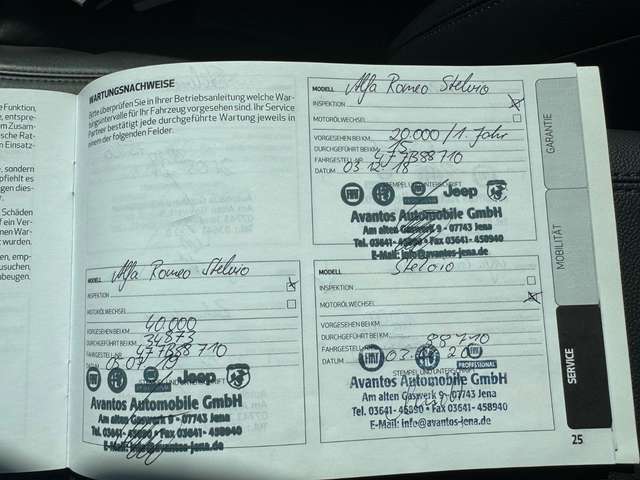 e Funktion,
e, entspre-
m Zusam-
sche Rat-
n Einsatz-
, sondern
pfiehlt es
gen dies-
r.
Schäden
f ein Ver-
nen War-
t wurden.
en, emp-
usuchen,
beugen.
WARTUNGSNACHWEISE
Bitte überprüfen Sie in Ihrer Betriebsanleitung welche War-
tungsintervalle für Ihr Fahrzeug vorgesehen sind. Ihr Service
Partner bestätigt jede durchgeführte Wartung jeweils in
einem der folgenden Felder.
MODELL Alfa Romeo Stelvio
INSPEKTION X
MOTORÖLWECHSEL
VORGESEHEN BEI KM 20.000/1 Jahr
DURCHGEFÜHRT BEI KM 15
FAHRGESTELLNR. 477B88710
DATUM 03 12 18
STEMPEL UND UNTERSCHRIFT
FIAT Jeep
Avantos Automobile GmbH
Am alten Gaswerk 9 - 07743 Jena
Tel. 03641- 45890 • Fax 03641- 458940
E-Mail: info@avantos-jena.de
MODELL Alfa Romeo Stelvio
INSPEKTION X
MOTORÖLWECHSEL
VORGESEHEN BEI KM 40.000
DURCHGEFÜHRT BEI KM 34873
FAHRGESTELLNR. 477B88710
DATUM 05 07 19
FIAT Jeep
Avantos Automobile GmbH
Am alten Gaswerk 9 - 07743 Jena
Tel. 03641- 45890 • Fax 03641- 458940
E-Mail: info@avantos-jena.de
MODELL Stelvio
INSPEKTION
MOTORÖLWECHSEL X
VORGESEHEN BEI KM
DURCHGEFÜHRT BEI KM
FAHRGESTELL 88710
DATUM 03 20
STEMPEL UND UNTERSCHRIFT
FIAT FIAT PROFESSIONAL
Avantos Automobile GmbH
Am alten Gaswerk 9 - 07743 Jena
Tel. 03641- 45890 • Fax 03641- 458940
E-Mail: info@avantos-jena.de
GARANTIE
MOBILITÄT
SERVICE
25